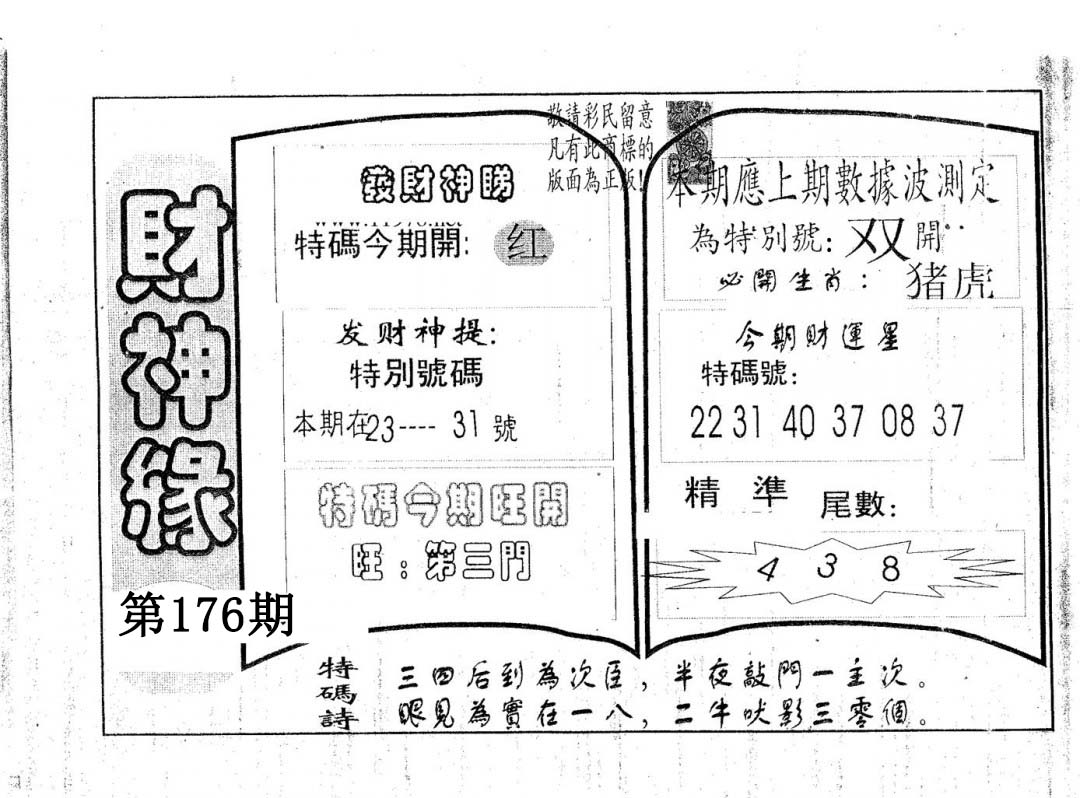 財神緣
第176期
敬請彩民留意
凡有此商標的
版面為正版!
發財神睇
特碼今期開: 红
发财神提:
特別號碼
本期在23----31號
特碼今期旺開
旺:第三門
本期應上期數據波測定
為特別號: 双開
必開生肖: 猪虎
今期財運星
特碼號:
22 31 40 37 08 37
精準 尾數:
4 3 8
特碼詩
三四后到為次臣,半夜敲門一主次。
眼見為實在一八,二牛吠影三零個。